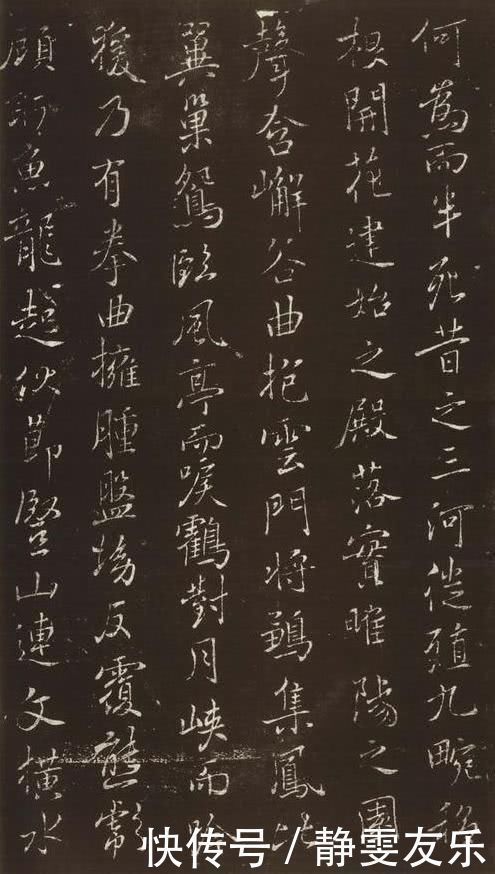 何爲而半死昔之三河徙殖九畹移
根開花建始之殿落實睢陽之園
聲含嶰谷曲抱雲門將鶵集鳳比
翼巢鴛臨風亭而唳鶴對月峽而吟
猨乃有拳曲擁腫盤坳反覆熊彪
顧盼魚龍起伏節竪山連文橫水
快传号 / 静雯友乐